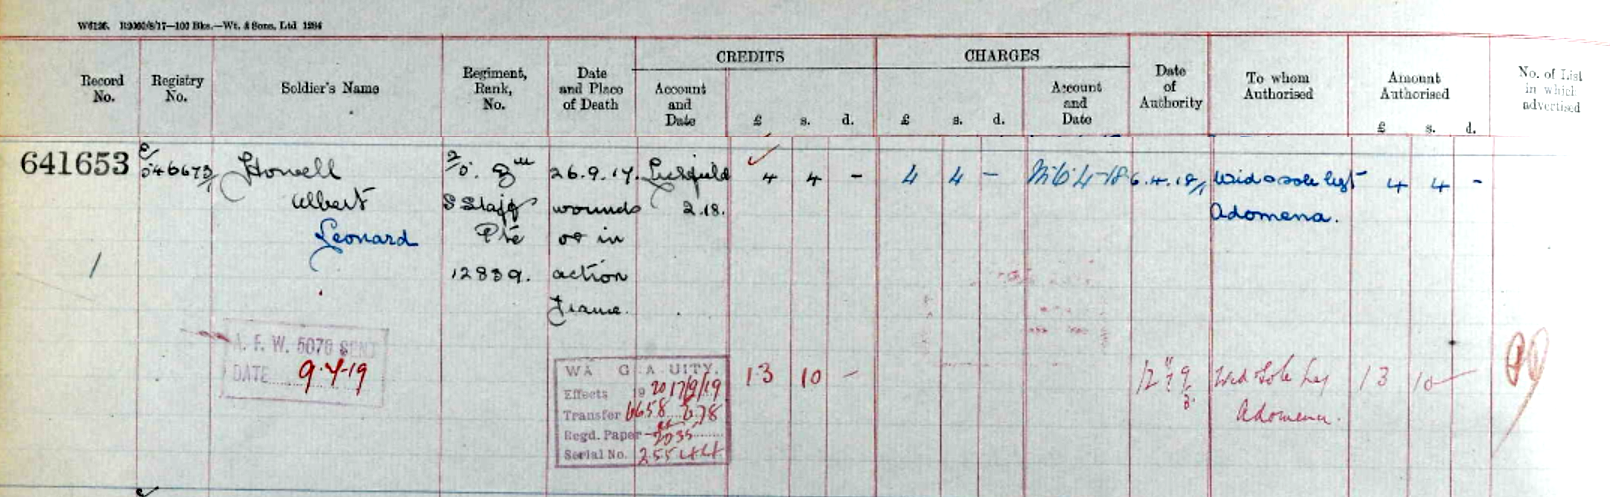 W6126. R2060/8/17—100 Bks.—Wt. & Sons, Ltd 1284
CREDITS
CHARGES
Record No.
Registry No.
Soldier's Name
Regiment, Rank, No.
Date and Place of Death
Account and Date
£ s. d.
£ s. d.
Account and Date
Date of Authority
To whom Authorised
Amount Authorised
£ s. d.
No. of List in which advertised
641653
E/546673/1
Howell
Albert
Leonard
8th
S Staff
Pte
12839.
26.9.17.
wounds
or in
action
France.
Lichfield
2.18.
4 4 -
4 4 -
6.4.18
Wid & sole legt
Adomena.
4 4 -
A. F. W. 5070 SENT
DATE 9-4-19
WA G A UITY.
Effects 19 20 17/9/19
Transfer 6658
Regd. Paper
Serial No. 
13 10 -
Wid Sole Leg
Adomena.
13 10 -